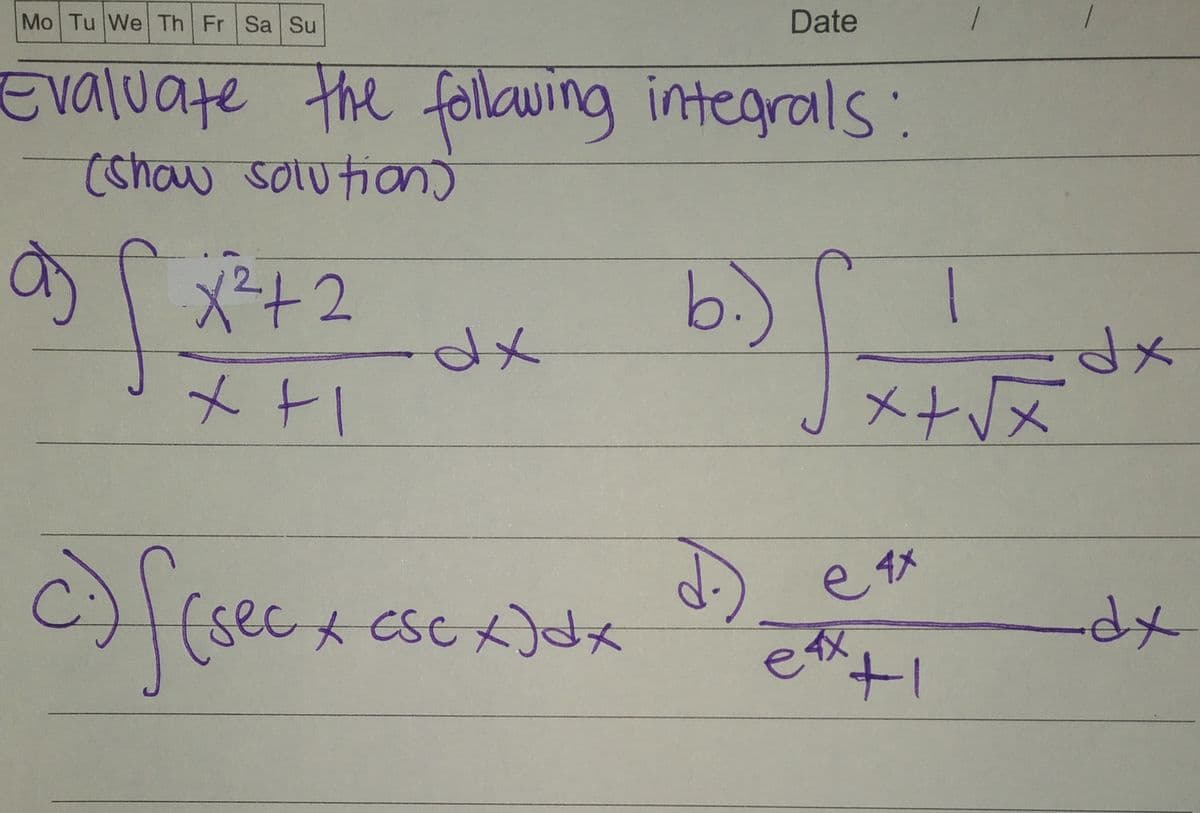 Mo Tu We Th Fr Sa Su Date / /
Evaluate the following integrals:
(show solution)
a) ∫ x²+2 / x+1 dx b.) ∫ 1 / x+√x dx
c.) ∫(sec x csc x)dx d.) e^4x / e^4x+1 dx